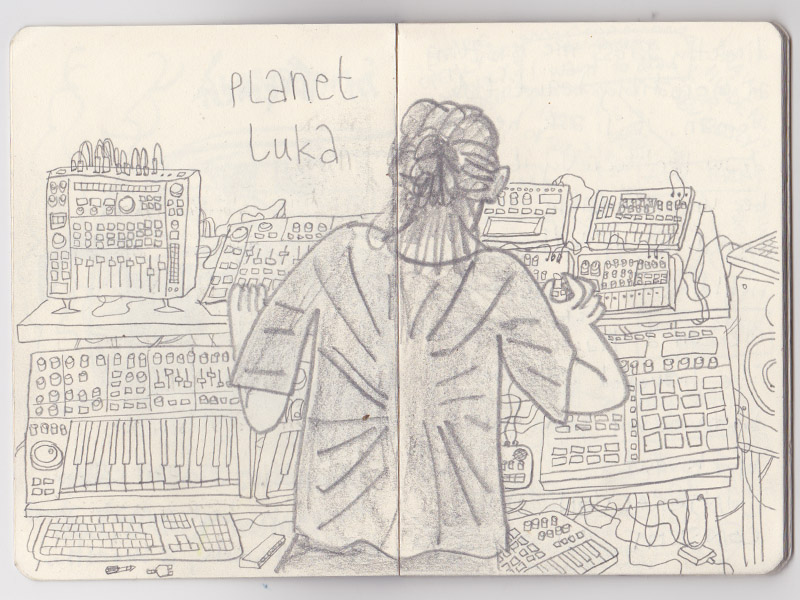 PLanet
Luka